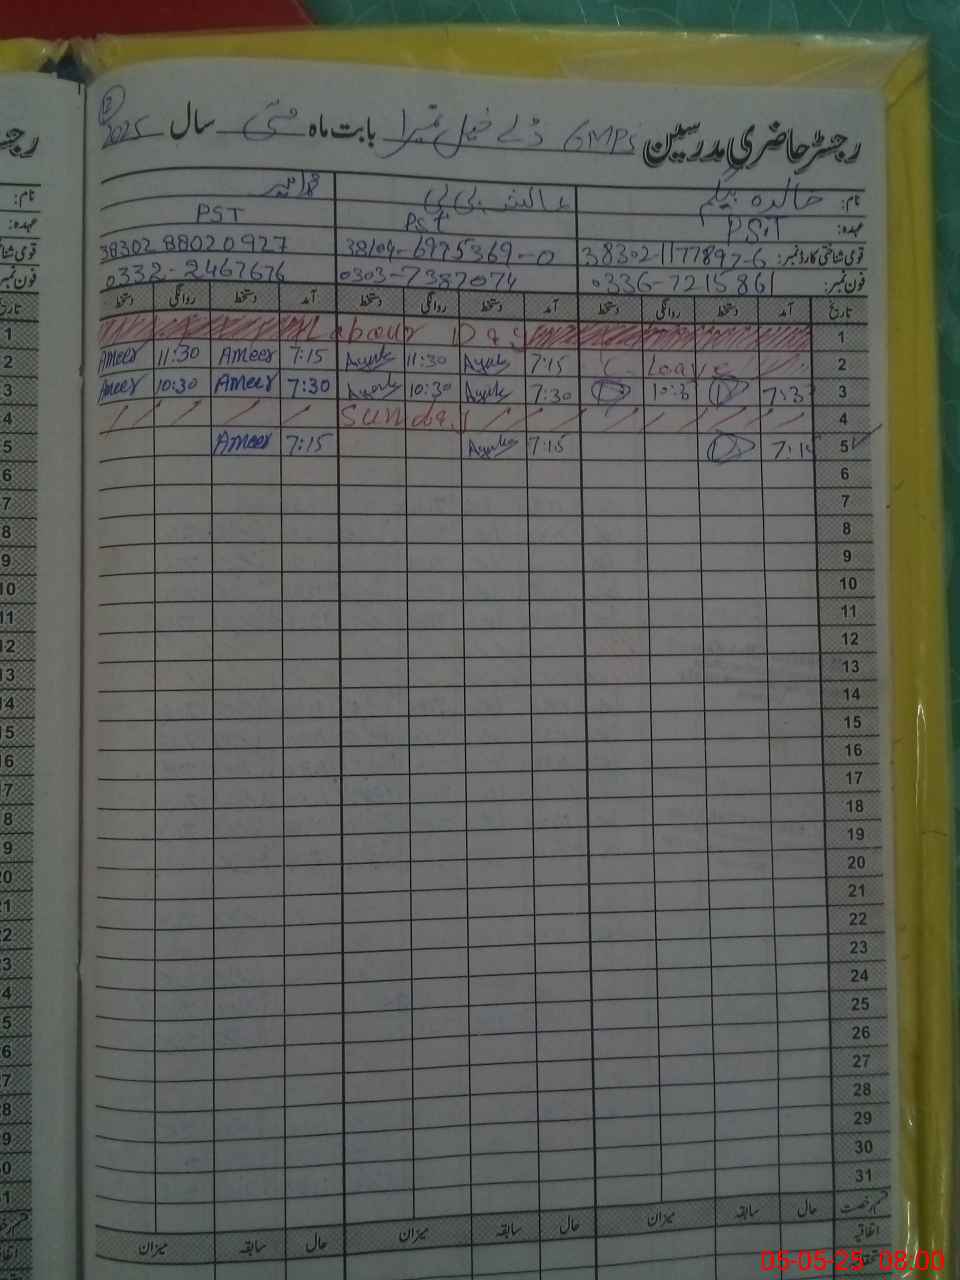 رجسٹر حاضری مدرسین GMPS ڈلے خیل تمبرا بابت ماہ مئی سال 2025
2
نام: خالدہ بیگم عائشہ بی بی
عہدہ: PST PST PST
قومی شناختی کارڈ نمبر: 38302-1177897-6 38104-6975369-0 38302 88020927
فون نمبر: 0336-7215861 0303-7387074 0332-2467676
تاریخ آمد دستخط روانگی دستخط آمد دستخط روانگی دستخط آمد دستخط روانگی دستخط
1 Labour Day
2 C. Leave 7:15 Ayesha 11:30 Ayesha 7:15 Ameer 11:30 Ameer
3 7:3 10:3 7:30 Ayesha 10:30 Ayesha 7:30 Ameer 10:30 Ameer
4 Sunday
5 7:15 7:15 Ayesha 7:15 Ameer
6
7
8
9
10
11
12
13
14
15
16
17
18
19
20
21
22
23
24
25
26
27
28
29
30
31
قسم رخصت حال سابقہ میزان حال سابقہ میزان حال سابقہ میزان
اتفاقیہ
05-05-25 08:00